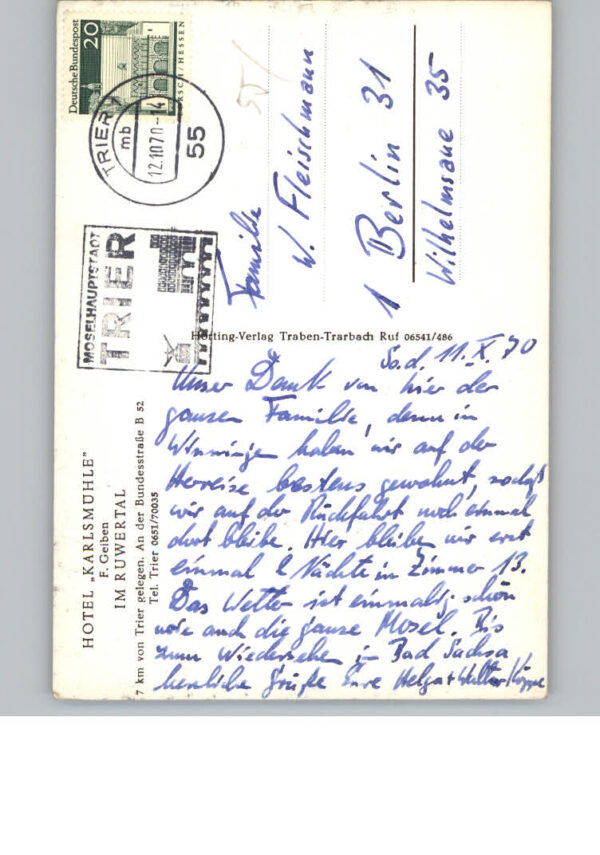 Deutsche Bundespost
20
LORSCH/HESSEN
TRIER
mb
12.10.70-14
55
MOSELHAUPTSTADT
TRIER
55/
Familie
W. Fleischmann
1 Berlin 31
Wilhelmsaue 35
Hörting-Verlag Traben-Trarbach Ruf 06541/486
HOTEL „KARLSMÜHLE"
F. Geiben
IM RUWERTAL
7 km von Trier gelegen. An der Bundesstraße B 52
Tel. Trier 0651/70035
So.d. 11.X.70
Unser Dank von hier der
ganzen Familie, denn in
Winningen haben wir auf der
Herreise bestens gewohnt, sodaß
wir auf der Rückfahrt noch einmal
dort bleibe. Hier bleibe wir erst
einmal 2 Nächte in Zimmer 13.
Das Wetter ist einmalig schön
wie auch die ganze Mosel. Bis
zum Wiedersehe in Bad Sachsa
herzliche Grüße Eure Helga + Walter